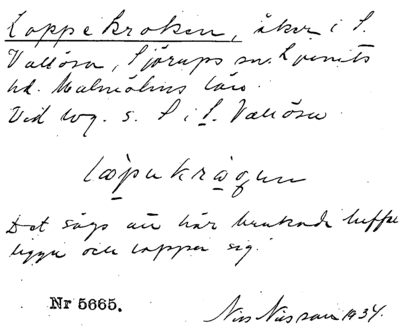 Loppekroken, åker i S.
Vallösa, Sjörups sn. Ljunits
hd. Malmöhus län.
Vid vg. s. S i S. Vallösa
Det sägs att här brukade luffare
ligga och loppa sig.
Nr 5665.
Nils Nilsson 1934.